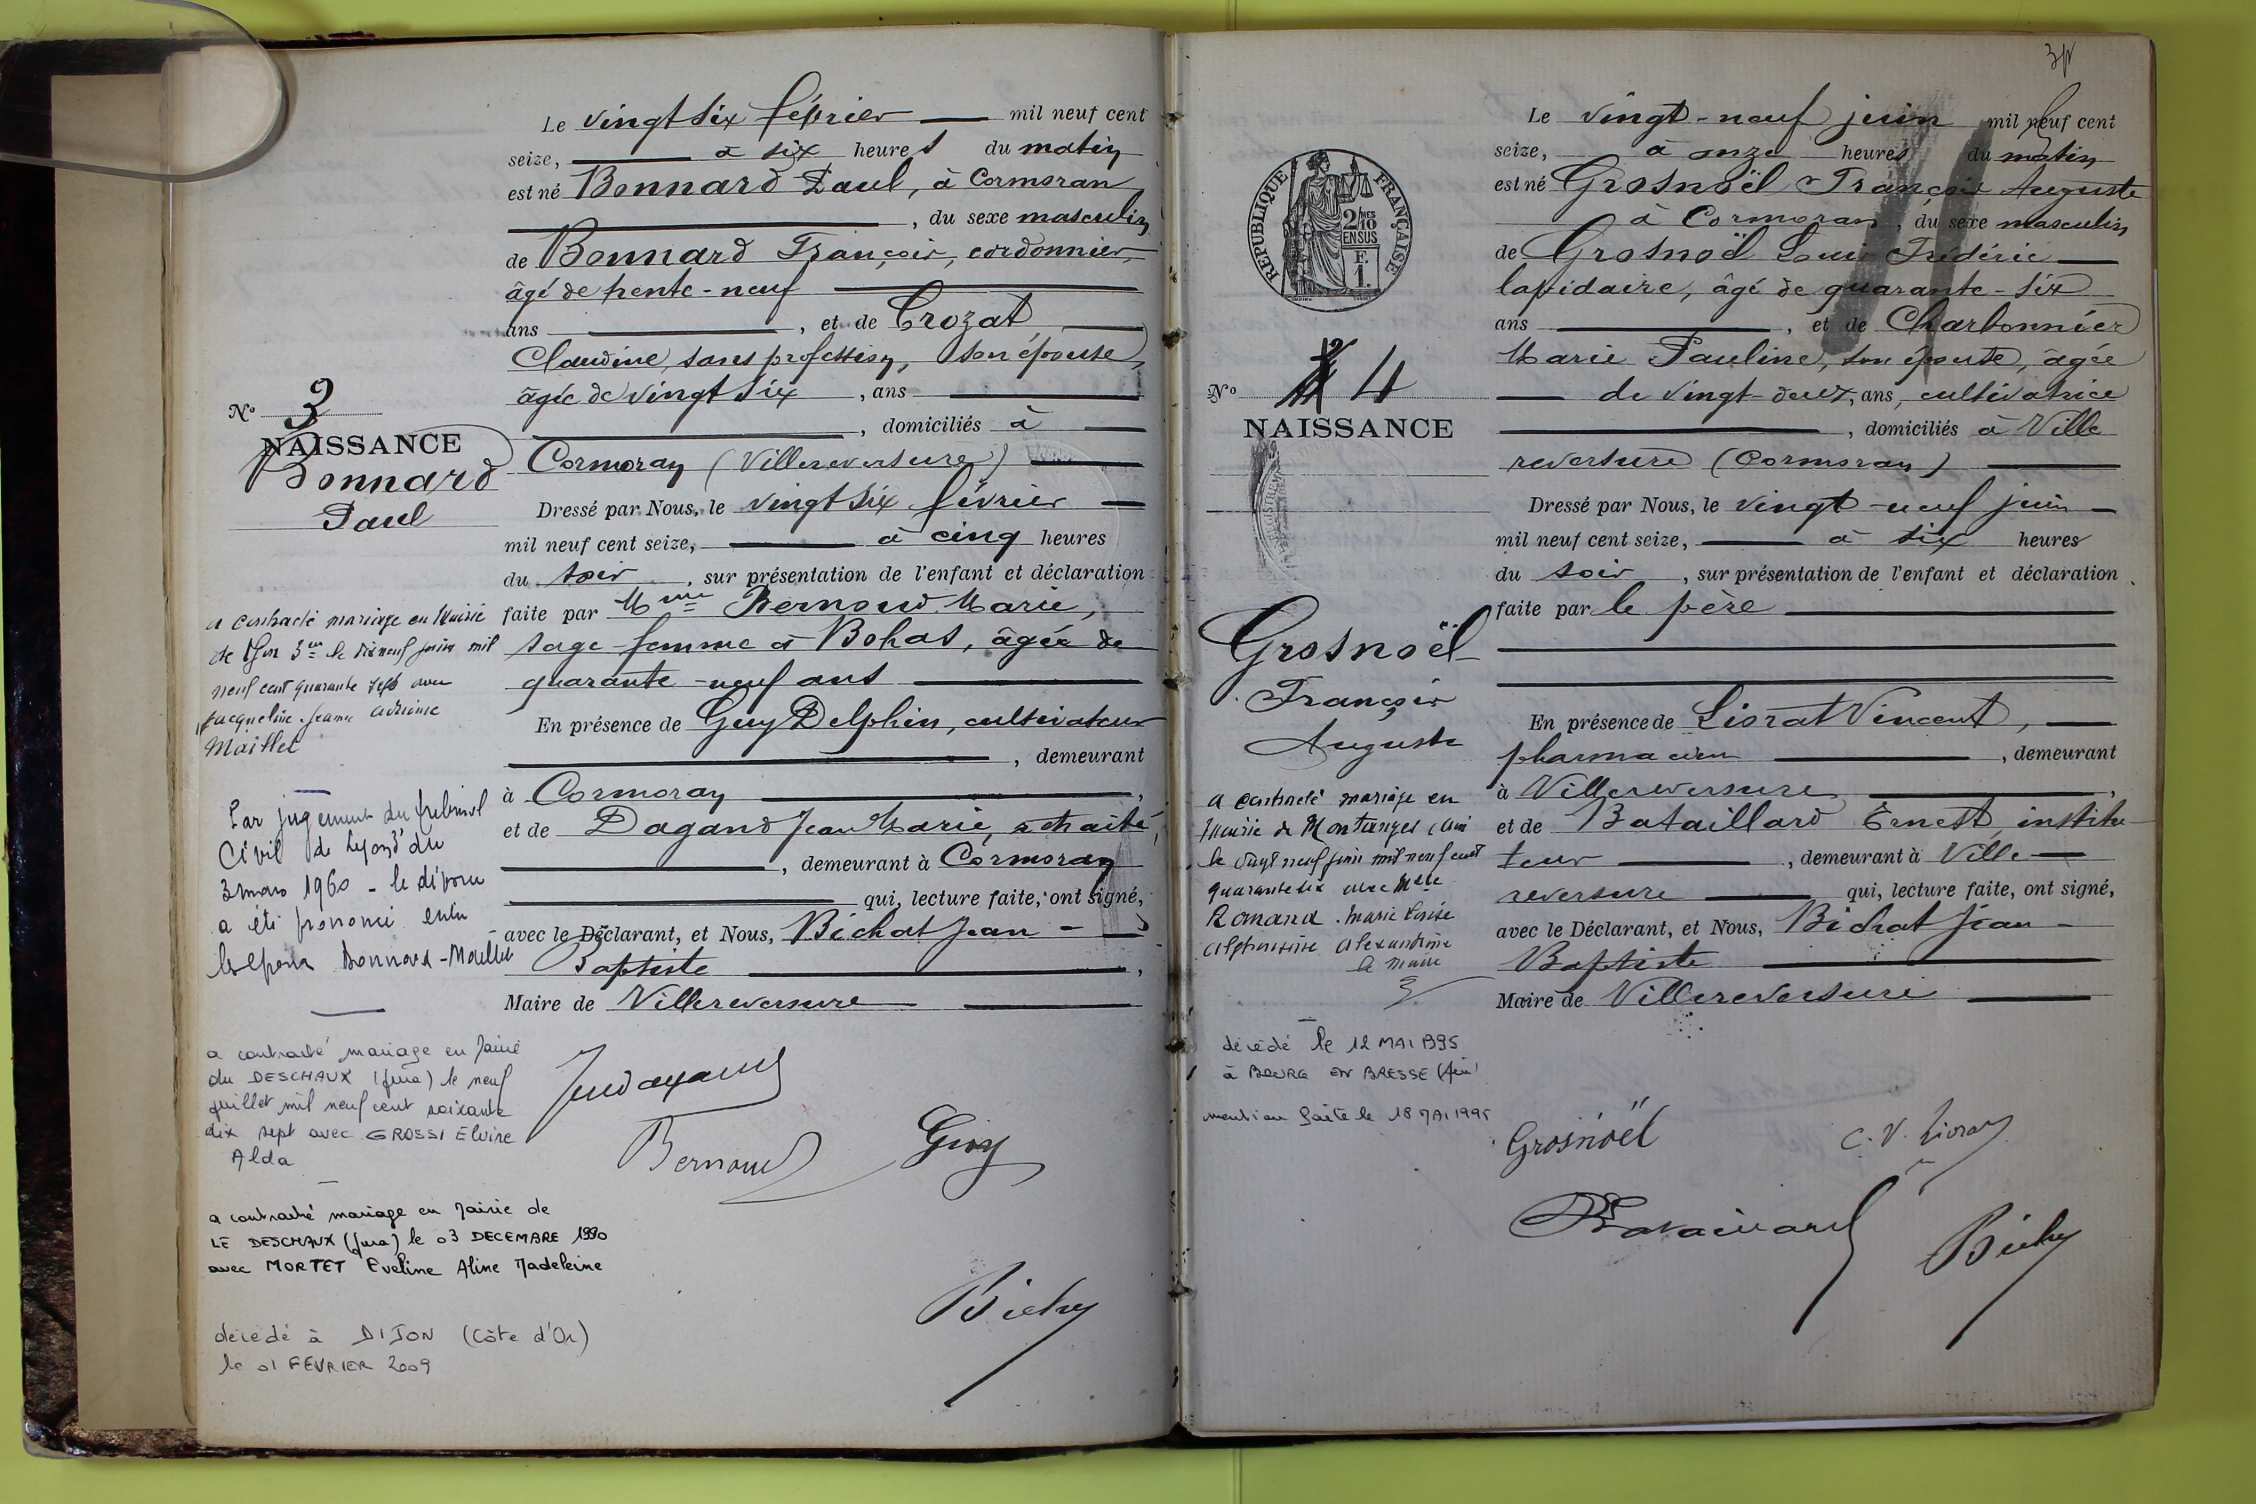 Le vingt six février mil neuf cent
seize, à six heures du matin
est né Bonnard Paul, à Cormoran
, du sexe masculin
de Bonnard François, cordonnier,
âgé de trente-neuf
ans , et de Crozat
Claudine, sans profession, son épouse,
âgée de vingt six , ans
, domiciliés à
Cormoran (Villereversure)
Dressé par Nous, le vingt six février
mil neuf cent seize, à cinq heures
du soir , sur présentation de l'enfant et déclaration
faite par Mme Bernoud Marie,
sage-femme à Bohas, âgée de
quarante-neuf ans
En présence de Guy Delphin, cultivateur
, demeurant
à Cormoran ,
et de Dagand Jean Marie, retraité,
, demeurant à Cormoran
qui, lecture faite, ont signé,
avec le Déclarant, et Nous, Bichat Jean -
Baptiste ,
Maire de Villereversure
Bernoud
Guy
Bichat
No 3
NAISSANCE
Bonnard
Paul
a contracté mariage en Mairie
de Lyon 3me le dix neuf juin mil
neuf cent quarante sept avec
Jacqueline Jeanne Adrienne
Maillet
Par jugement du tribunal
Civil de Lyon du
3 mars 1960 - le divorce
a été prononcé entre
les époux Bonnard-Maillet
a contracté mariage en Mairie
du DESCHAUX (Jura) le neuf
juillet mil neuf cent soixante
dix sept avec GROSSI Elvire
Alda
a contracté mariage en Mairie de
LE DESCHAUX (Jura) le 03 DECEMBRE 1990
avec MORTET Eveline Aline Madeleine
décédé à DIJON (Côte d'Or)
le 01 FEVRIER 2009
REPUBLIQUE FRANÇAISE
2/10 MES
EN SUS
F.
1.
No 4
NAISSANCE
Grosnoël
François
Auguste
a contracté mariage en
Mairie de Montanges (Ain)
le vingt neuf juin mil neuf cent
quarante six avec Mlle
Romand Marie Louise
Alphonsine Alexandrine
Le Maire
décédé le 12 MAI 1995
à BOURG EN BRESSE (Ain)
mention faite le 18 MAI 1995
Le vingt-neuf juin mil neuf cent
seize, à onze heures du matin
est né Grosnoël François Auguste
à Cormoran , du sexe masculin
de Grosnoël Louis Frédéric
lapidaire, âgé de quarante-six
ans , et de Charbonnier
Marie Pauline, son épouse, âgée
de vingt-deux, ans, cultivatrice
, domiciliés à Ville
reversure (Cormoran)
Dressé par Nous, le vingt-neuf juin
mil neuf cent seize, à six heures
du soir , sur présentation de l'enfant et déclaration
faite par le père
En présence de Liorat Vincent,
pharmacien , demeurant
à Villereversure ,
et de Bataillard Ernest, institu-
teur , demeurant à Ville
reversure qui, lecture faite, ont signé,
avec le Déclarant, et Nous, Bichat Jean -
Baptiste
Maire de Villereversure
Grosnoël
C. V. Liorat
Bataillard
Bichat